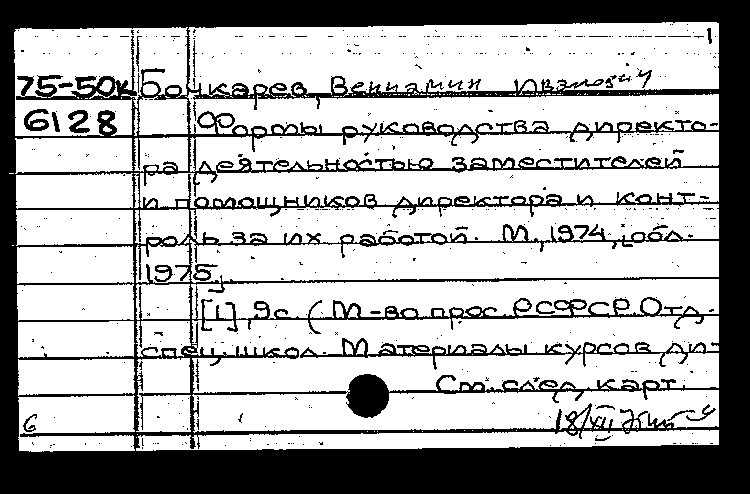 1
75-50к Бочкарев, Вениамин Иванович
6128 Формы руководства директо-
ра деятельностью заместителей
и помощников директора и конт-
роль за их работой. М., 1974, [обл.
1975].
[1], 9с. (М-во прос. РСФСР. Отд.
спец. школ. Материалы курсов ди-
См. след. карт.
6 18/XII